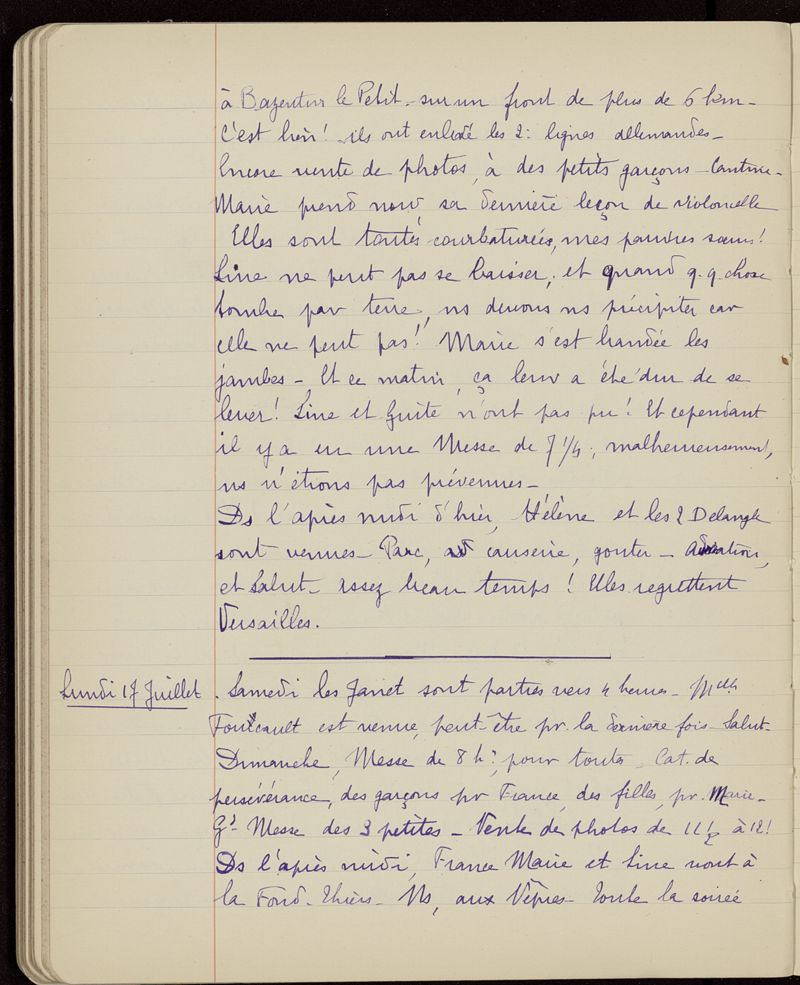 à Bazentin le Petit - sur un front de plus de 6 km -
C'est bien! ils ont enlevé les 2: lignes allemandes -
Encore vente de photos, à des petits garçons - Cantine -
Marie prend sa dernière leçon de violoncelle
Elles sont toutes courbaturées, mes pauvres sœurs!
Line ne peut pas se baisser, et quand q. q. chose
tombe par terre, ns devons ns précipiter car
elle ne peut pas! Marie s'est bandée les
jambes - Et ce matin, ça leur a été dur de se
lever! Line et Guite n'ont pas pu! Et cependant
il y a eu une Messe de 7 1/4, malheureusement,
ns n'étions pas prévenues -
Ds l'après midi d'hier, Hélène et les 2 Delangle
sont venues - Parc, causerie, gouter - Adoration,
et Salut - assez beau temps! Elles regrettent
Versailles.
Lundi 17 Juillet. Samedi les Janet sont parties vers 4 heures - Melle
Foucault est venue, peut-être pr. la dernière fois - Salut -
Dimanche, Messe de 8 h: pour toutes - Cat. de
persévérance, des garçons pr France, des filles, pr. Marie -
Gd Messe des 3 petites - Vente de photos de 11 1/2 à 12!
Ds l'après midi, France Marie et Line vont à
la Fond. Thiers - Ns, aux Vêpres - Toute la soirée